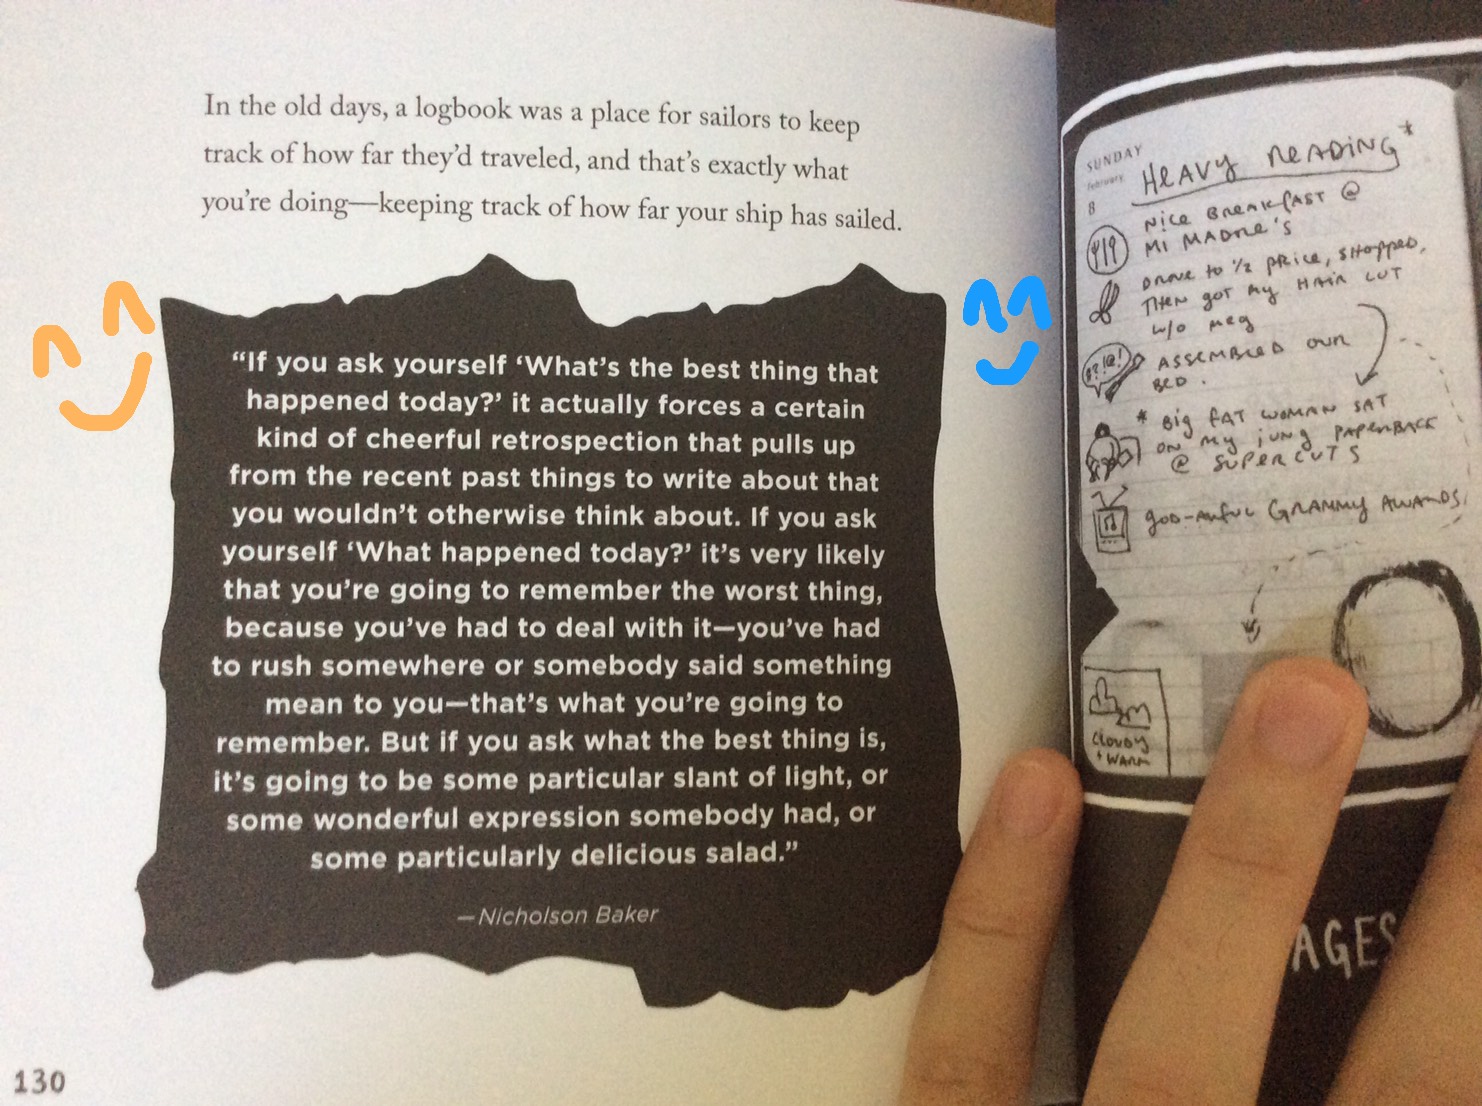 In the old days, a logbook was a place for sailors to keep
track of how far they’d traveled, and that’s exactly what
you’re doing—keeping track of how far your ship has sailed.
“If you ask yourself ‘What’s the best thing that
happened today?’ it actually forces a certain
kind of cheerful retrospection that pulls up
from the recent past things to write about that
you wouldn’t otherwise think about. If you ask
yourself ‘What happened today?’ it’s very likely
that you’re going to remember the worst thing,
because you’ve had to deal with it—you’ve had
to rush somewhere or somebody said something
mean to you—that’s what you’re going to
remember. But if you ask what the best thing is,
it’s going to be some particular slant of light, or
some wonderful expression somebody had, or
some particularly delicious salad.”
—Nicholson Baker
130
SUNDAY
February
8
HEAVY READING*
NICE BREAKFAST @
MI MADRE'S
DROVE TO 1/2 PRICE, SHOPPED,
THEN GOT MY HAIR CUT
W/O MEG
#?!@!
ASSEMBLED OUR
BED.
* BIG FAT WOMAN SAT
ON MY JUNG PAPERBACK
@ SUPERCUTS
GOD-AWFUL GRAMMY AWARDS
CLOUDY
+ WARM
AGES